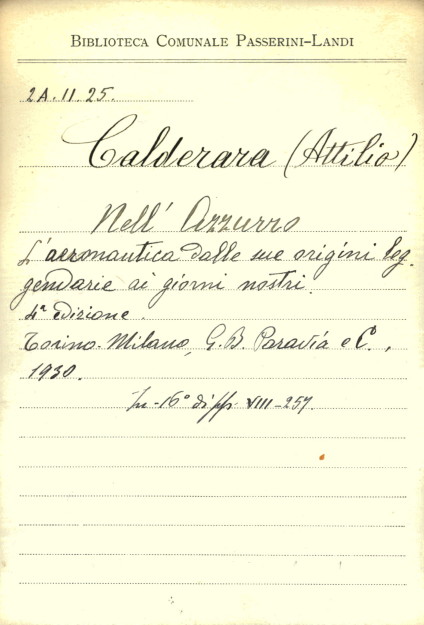 BIBLIOTECA COMUNALE PASSERINI-LANDI
2A.11.25.
Calderara (Attilio)
Nell' Azzurro
L'aeronautica dalle sue origini leg-
gendarie ai giorni nostri.
4ª edizione.
Torino-Milano, G.B. Paravia e C.,
1930.
In-16° di pp. VIII-257.